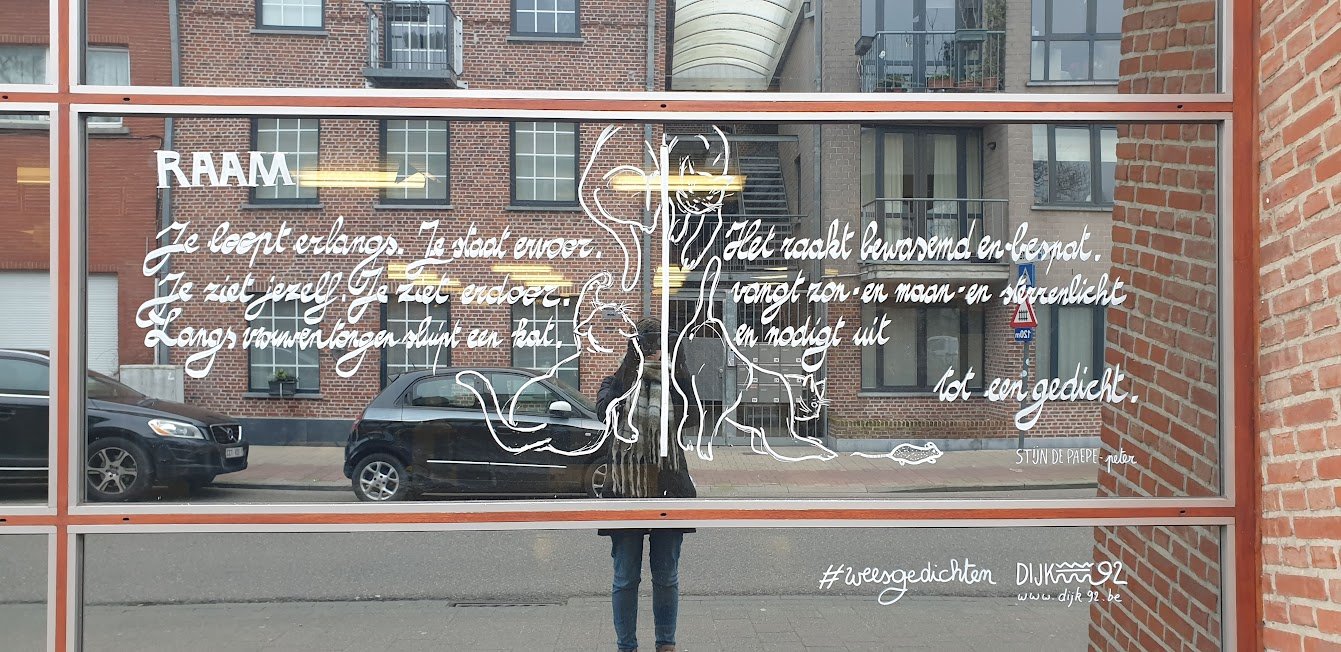 RAAM
Je loopt erlangs. Je staat ervoor.
Je ziet jezelf. Je ziet erdoor.
Langs vrouwentongen sluipt een kat.
Het raakt bewasemd en bespat.
vangt zon- en maan- en sterrenlicht
en nodigt uit
tot een gedicht.
STIJN DE PAEPE - peter
#weesgedichten
DIJK 92
www.dijk92.be